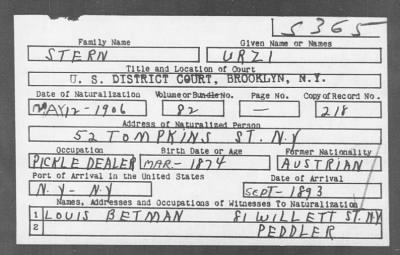 S365
Family Name Given Name or Names
STERN URZI
Title and Location of Court
U. S. DISTRICT COURT, BROOKLYN, N.Y.
Date of Naturalization Volume or Bundle No. Page No. Copy of Record No.
MAY 12-1906 82 — 218
Address of Naturalized Person
52 TOMPKINS ST. N.Y
Occupation Birth Date or Age Former Nationality
PICKLE DEALER MAR- 1874 AUSTRIAN
Port of Arrival in the United States Date of Arrival
N.Y- N.Y SEPT-1893
Names, Addresses and Occupations of Witnesses To Naturalization
1 LOUIS BETMAN 81 WILLETT ST. N.Y
2 PEDDLER